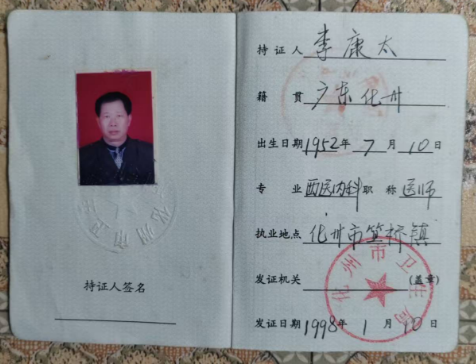 持证人签名
持证人 李康太
籍贯 广东化州
出生日期 1952年7月10日
专业 西医内科 职称 医师
执业地点 化州市笪桥镇
发证机关 (盖章)
化州市卫生局
发证日期 1998年1月10日